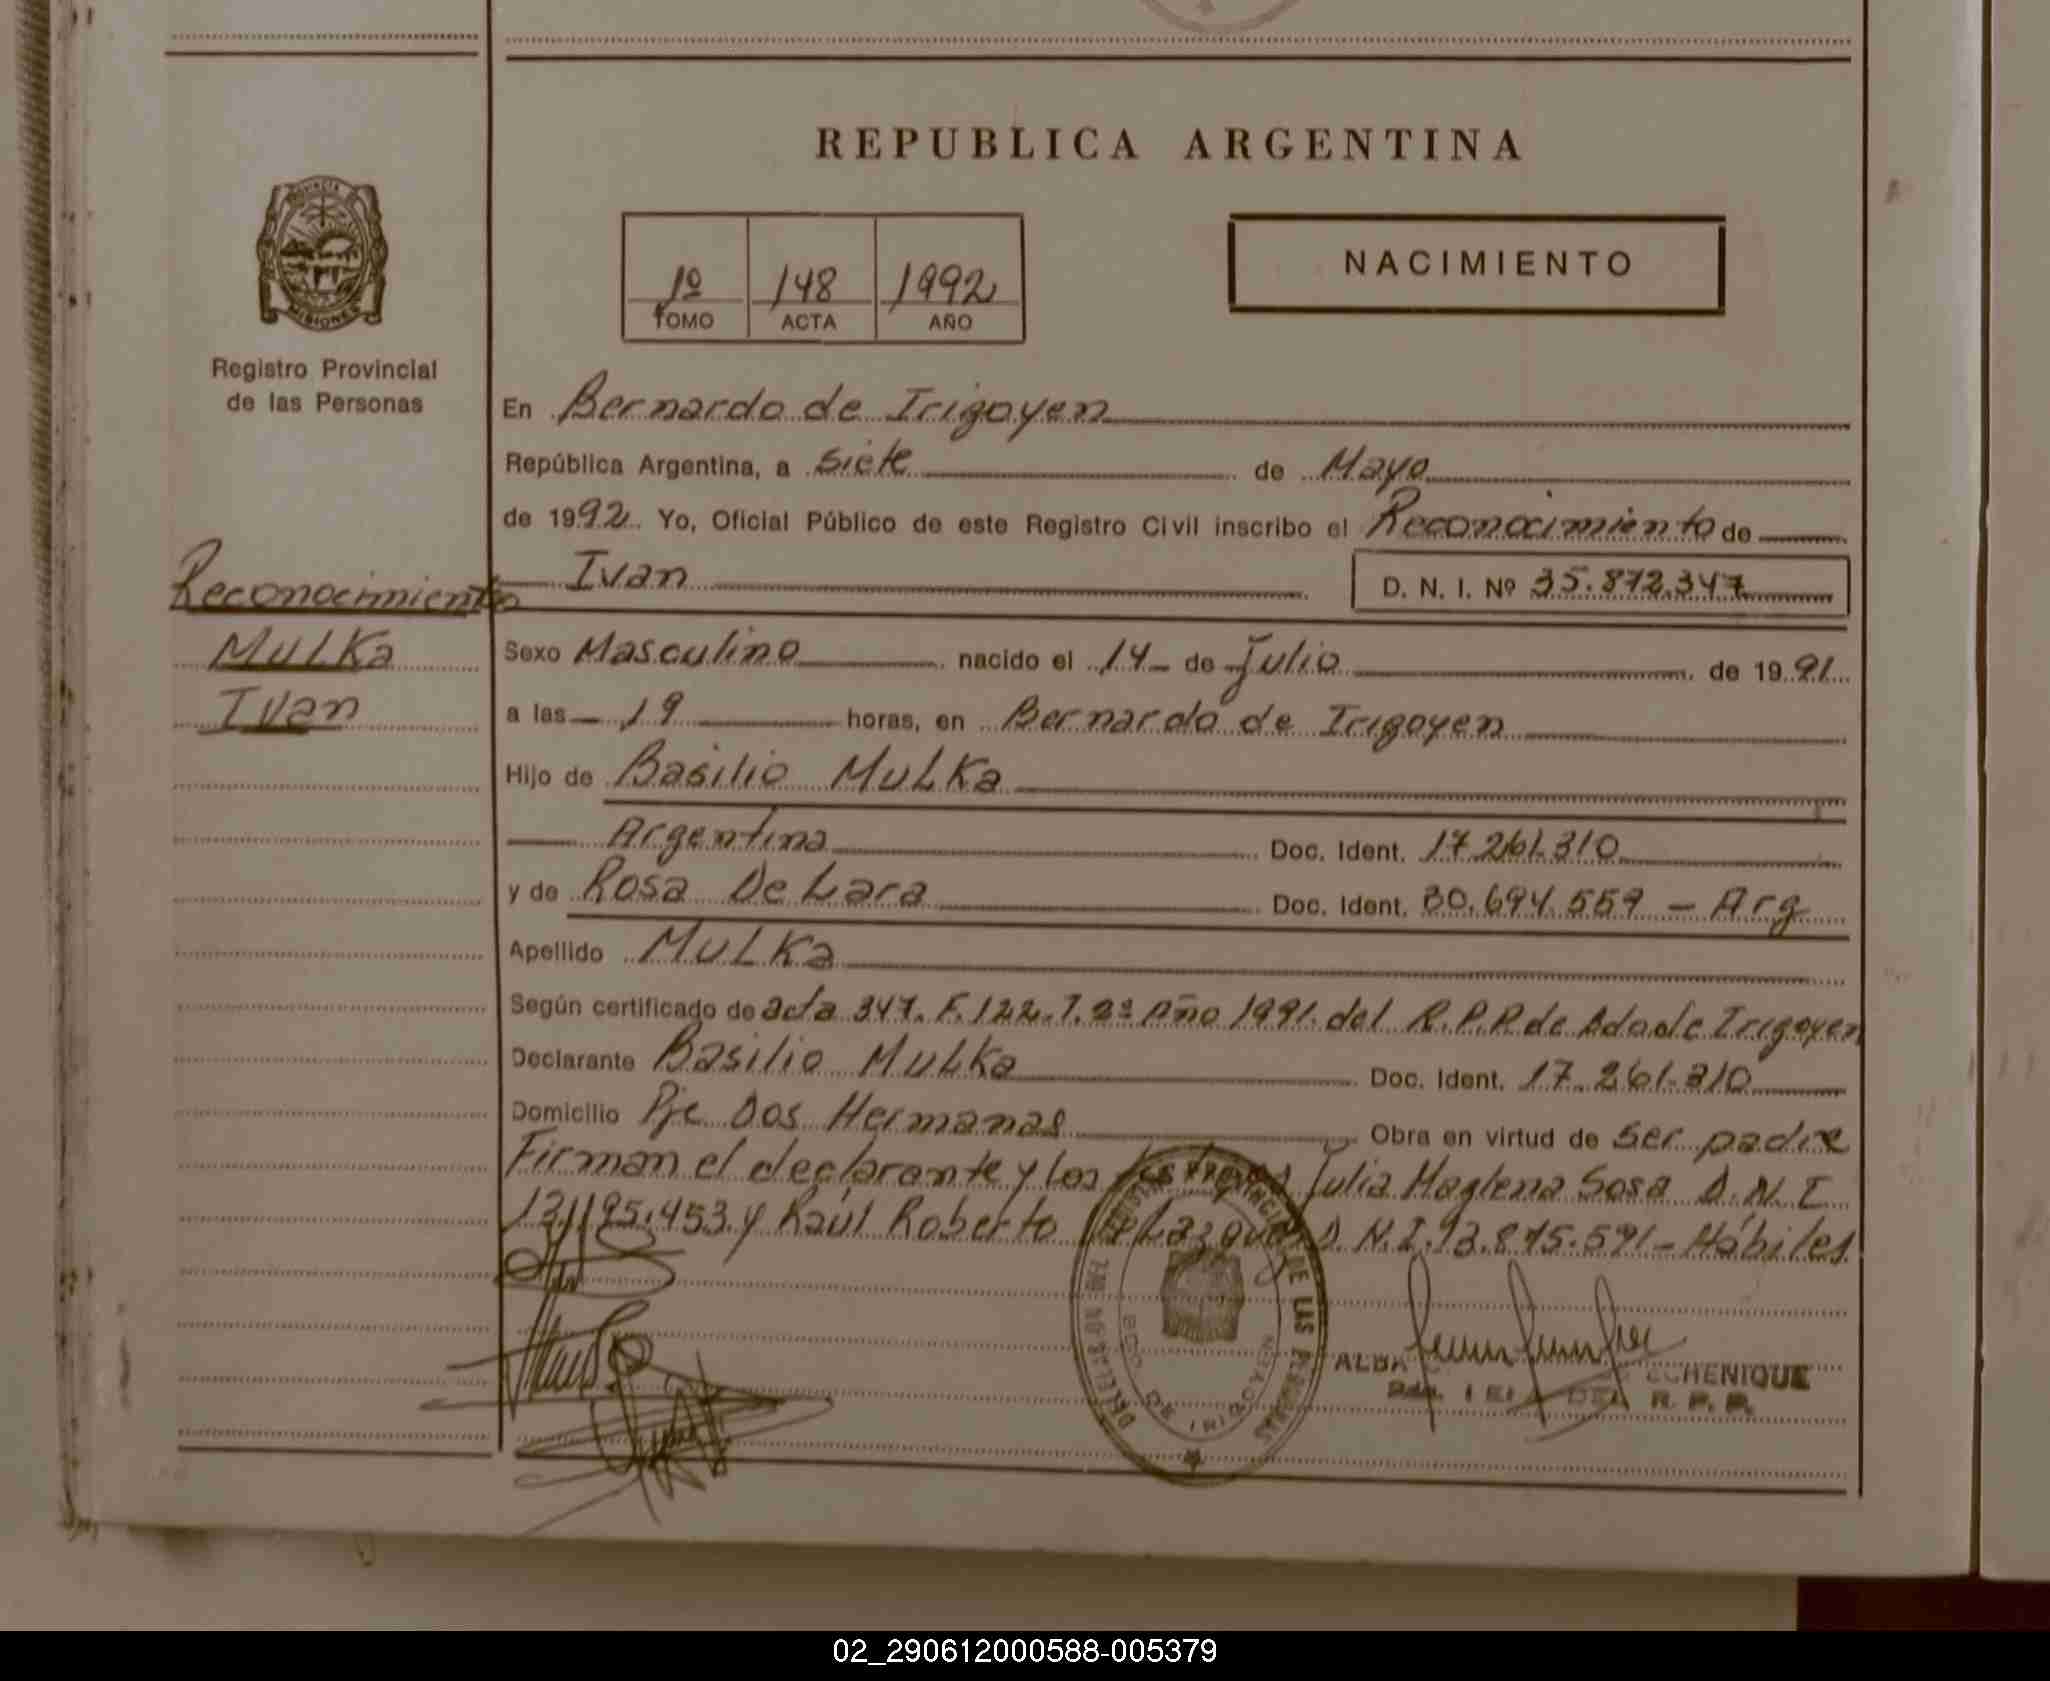 REPUBLICA ARGENTINA
PROVINCIA
MISIONES
Registro Provincial
de las Personas
1º 148 1992
TOMO ACTA AÑO
NACIMIENTO
En Bernardo de Irigoyen
República Argentina, a siete de Mayo
de 1992. Yo, Oficial Público de este Registro Civil inscribo el Reconocimiento de
Ivan D. N. I. Nº 35.872.347
Reconocimiento
Mulka
Ivan
Sexo Masculino nacido el 14 de Julio de 1991
a las 19 horas, en Bernardo de Irigoyen
Hijo de Basilio Mulka
Argentina Doc. Ident. 17.261.310
y de Rosa De Lara Doc. Ident. 30.694.559 - Arg
Apellido Mulka
Según certificado de acta 347. F. 122. T. 2º Año 1991. del R.P.P. de Irigoyen
Declarante Basilio Mulka Doc. Ident. 17.261.310
Domicilio Pje Dos Hermanas Obra en virtud de ser padre
Firman el declarante y los testigos Julia Sosa D.N.I.
453. y Raúl Roberto D.N.I. 13.875.591 - Hábiles
DE LAS PERSONAS
DE IRIGOYEN
ALBA ECHENIQUE
DEL R. P. P.
02_290612000588-005379